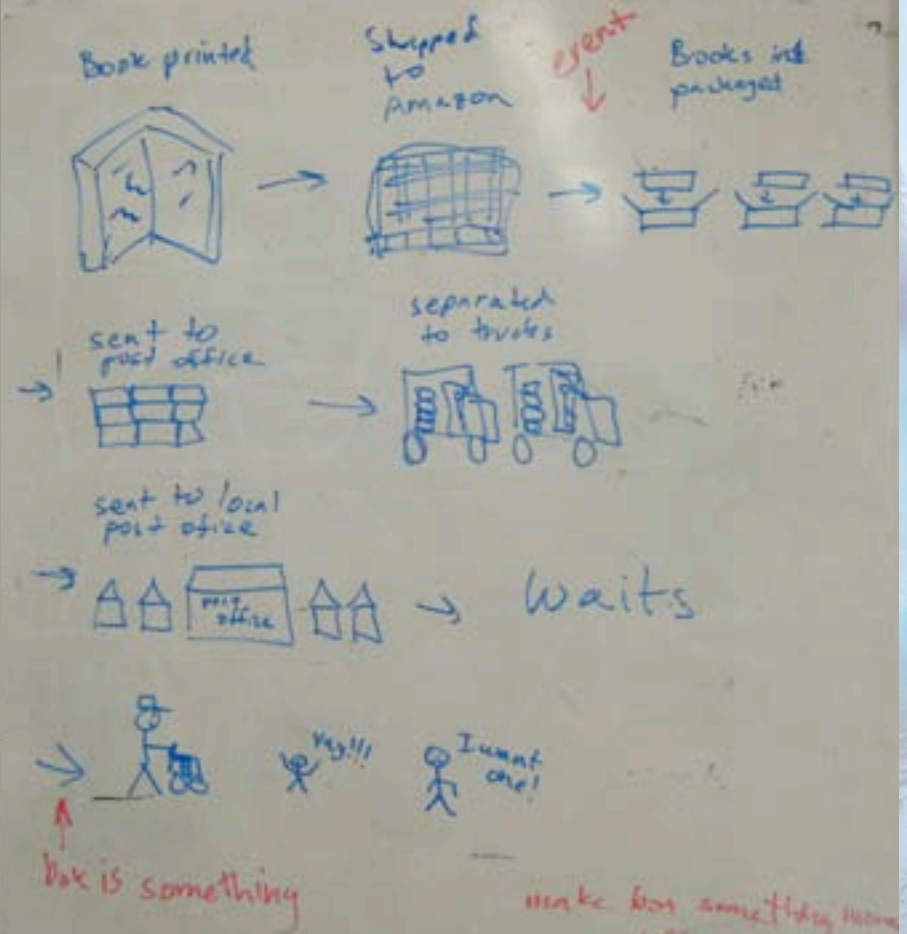 Book printed
Shipped
to
Amazon
event
Books
packaged
sent to
post office
separated
to trucks
sent to local
post ofice
post
office
Waits
Yay!!!
I want
one!
is something
make box something more